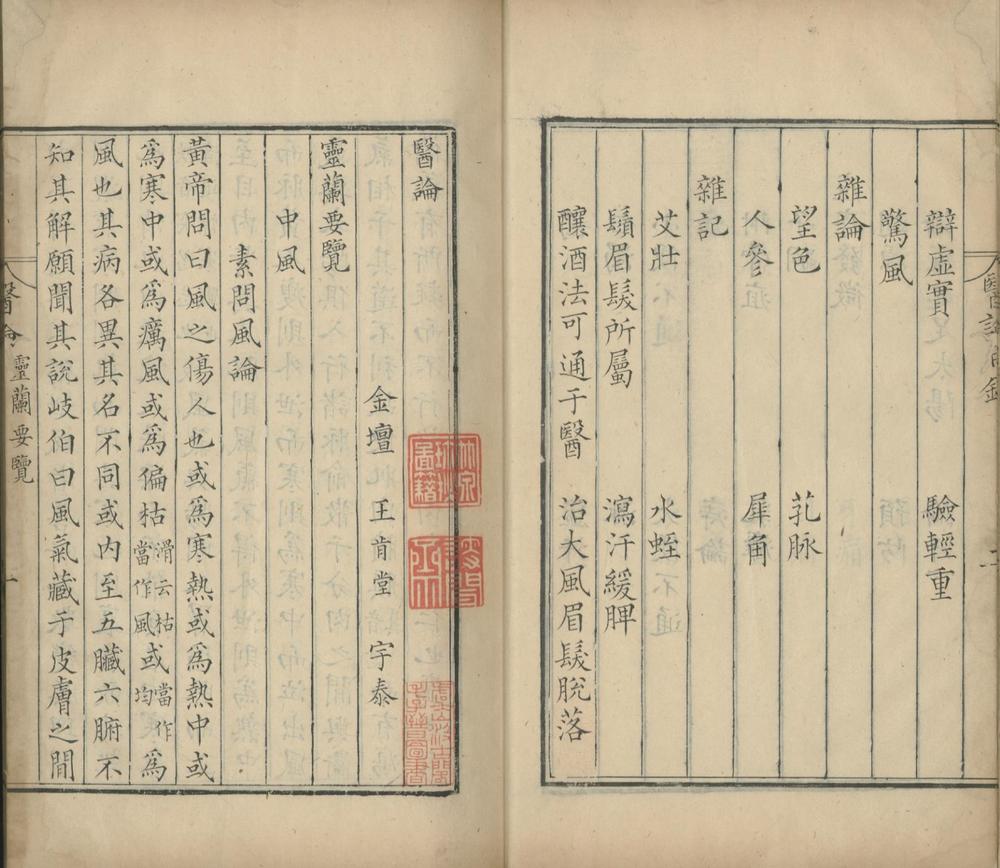 醫論目錄
辯虛實 驗輕重
驚風
雜論
望色 芤脉
人參 犀角
雜記
艾壯 水蛭
鬚眉髮所屬 瀉汗緩脾
釀酒法可通于醫 治大風眉髮脫落
醫論
金壇 王肯堂 宇泰
靈蘭要覽
中風
素問風論
黃帝問曰風之傷人也或爲寒熱或爲熱中或
爲寒中或爲癘風或爲徧枯滑云枯當作風或當作均爲
風也其病各異其名不同或内至五臟六腑不
知其解願聞其說岐伯曰風氣藏于皮膚之間
醫論 靈蘭要覽 一